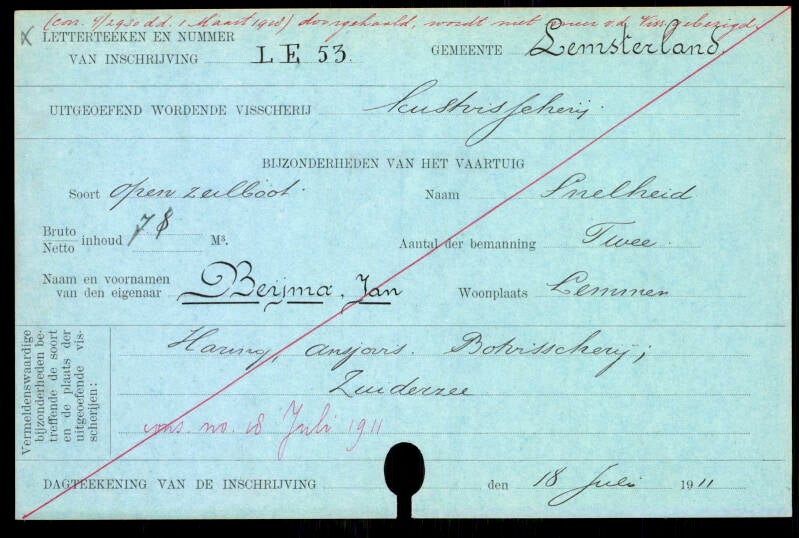 (con. 4/2950 dd. 1 Maart 1918) doorgehaald, wordt niet meer v.d. Vissch. gebezigd.
LETTERTEEKEN EN NUMMER
VAN INSCHRIJVING LE 53. GEMEENTE Lemsterland.
UITGEOEFEND WORDENDE VISSCHERIJ kustvisscherij.
BIJZONDERHEDEN VAN HET VAARTUIG
Soort open zeilboot. Naam Snelheid
Bruto
Netto inhoud 78 M³. Aantal der bemanning Twee.
Naam en voornamen
van den eigenaar Beijma, Jan Woonplaats Lemmer
Vermeldenswaardige
bijzonderheden be-
treffende de soort
en de plaats der
uitgeoefende vis-
scherijen:
Haring, ansjovis. Botvisscherij;
Zuiderzee
ons. no. 18 Juli 1911
DAGTEEKENING VAN DE INSCHRIJVING den 18 Juli 1911